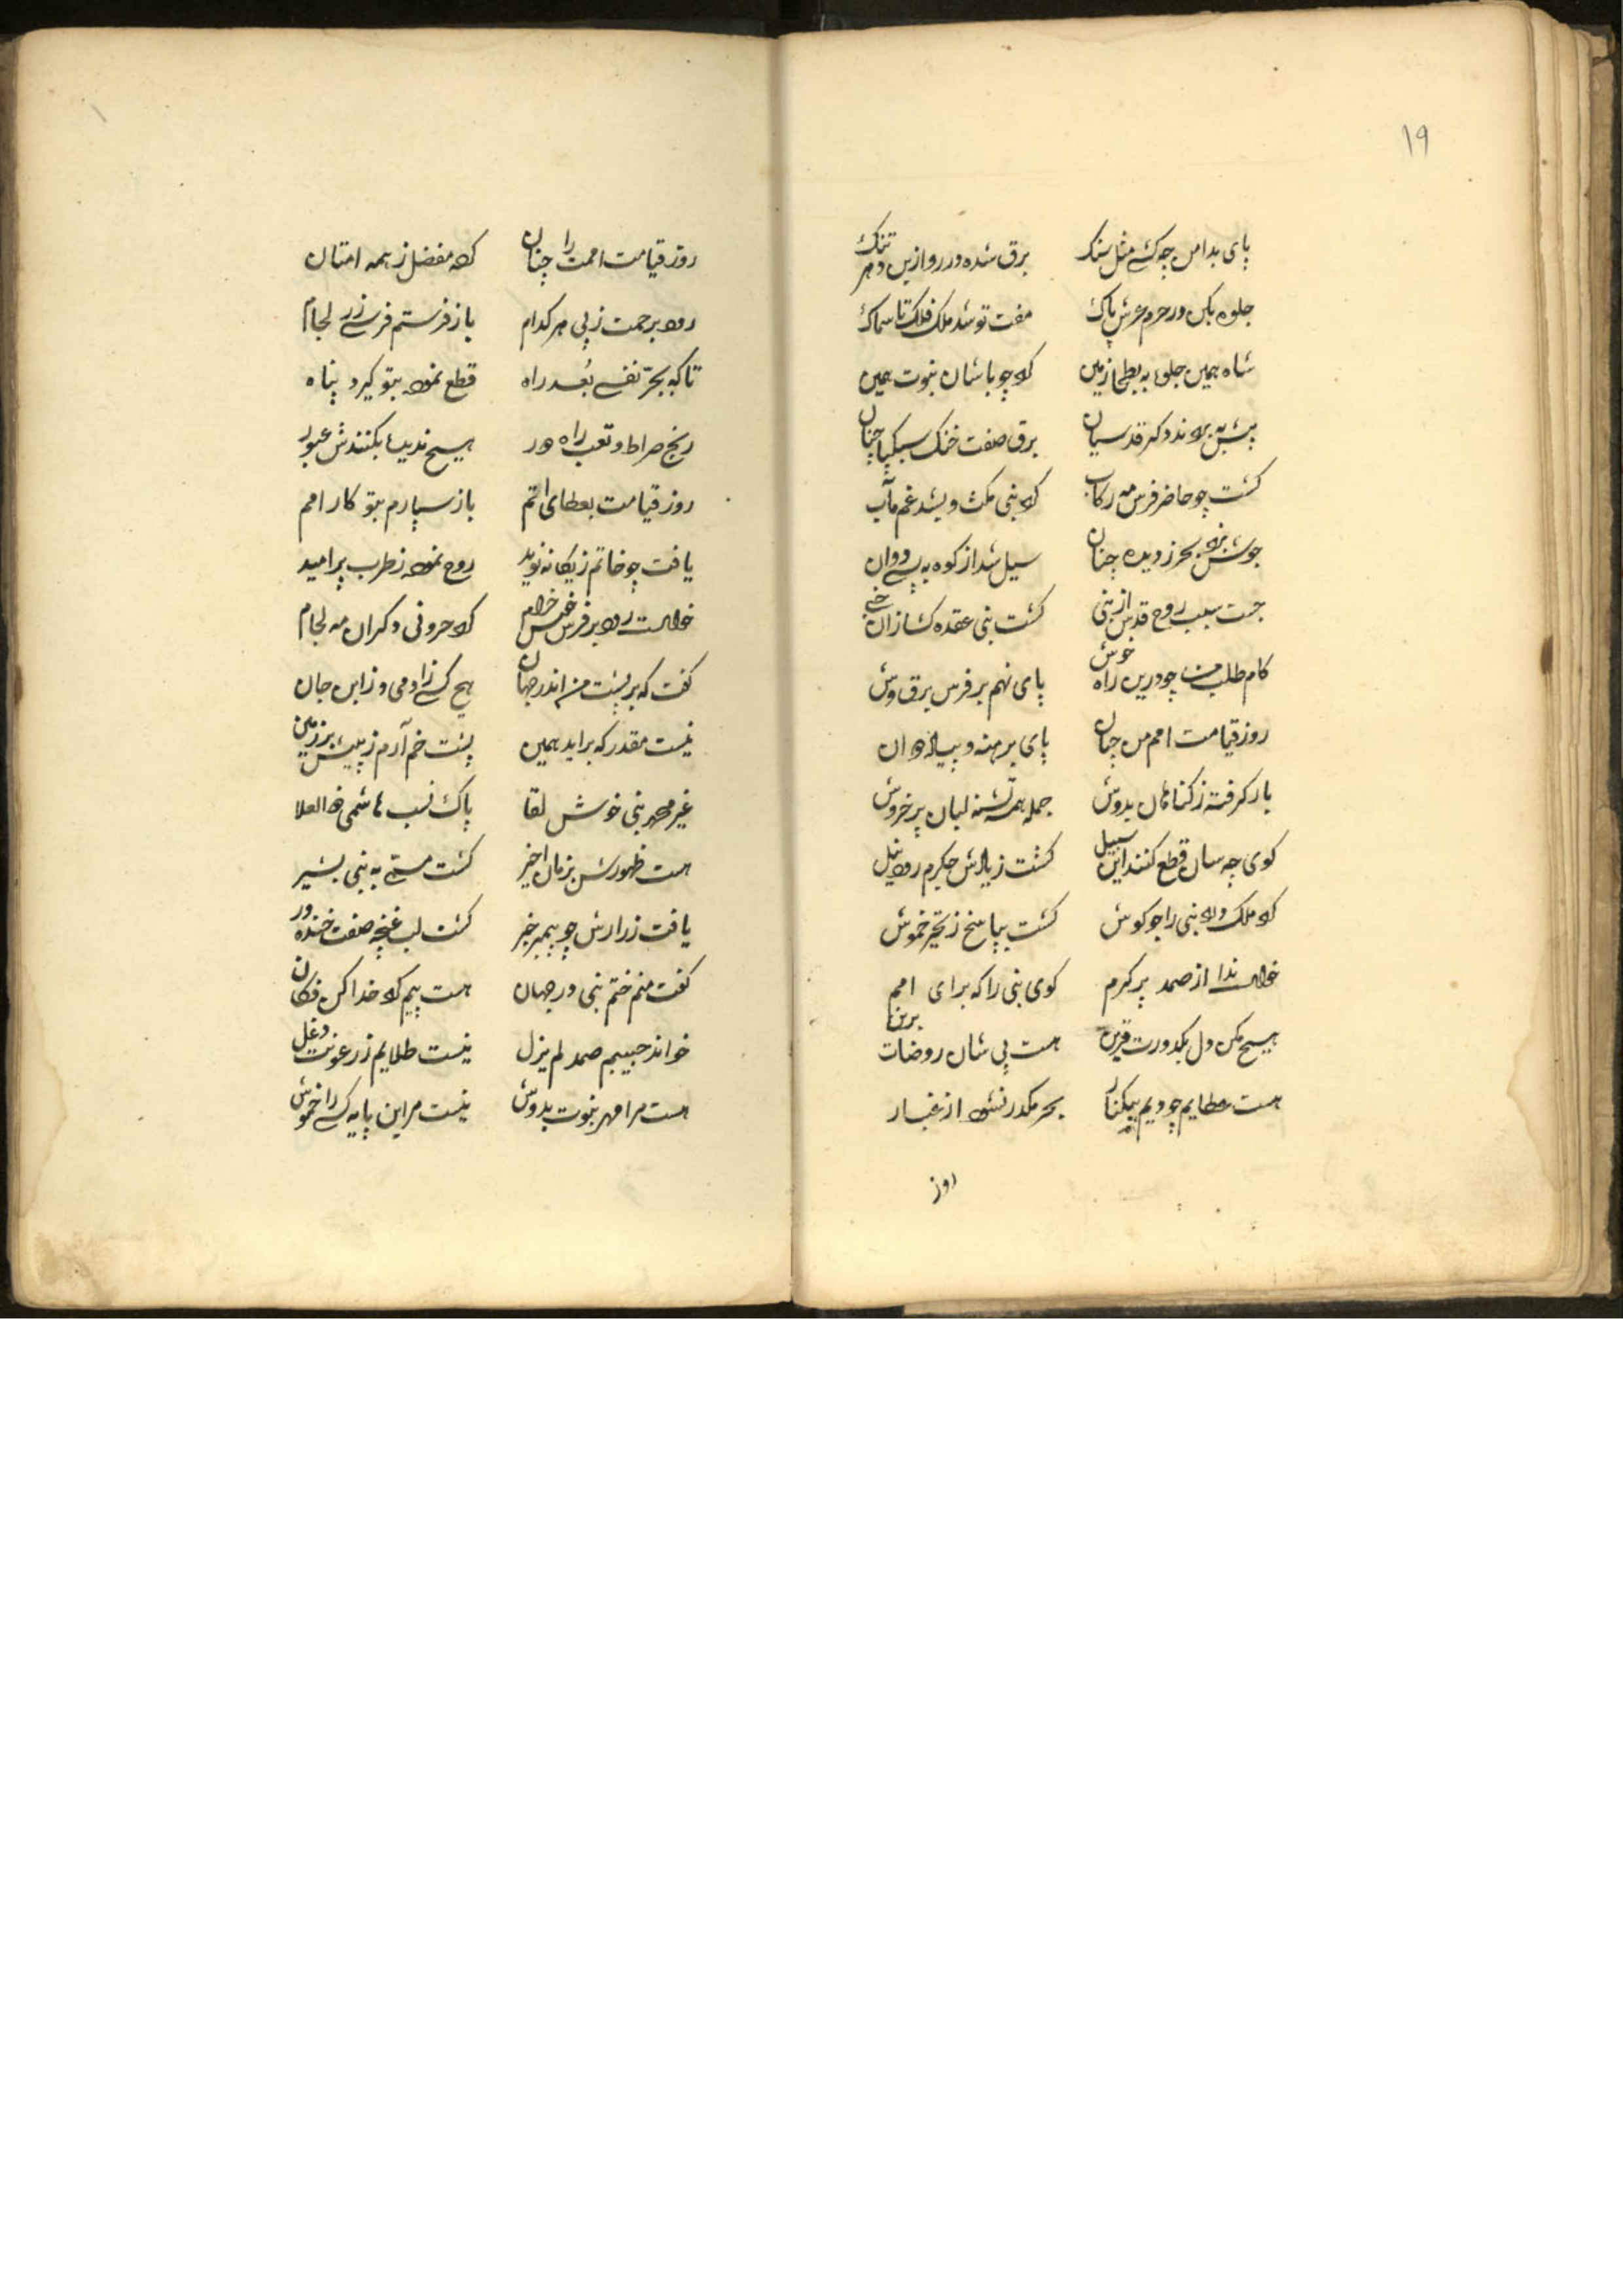 ١٩
پای بدامن چه کشی مثل سنک برق شده در رو ازین تنک
جلوه بکن در حرم عرش پاک مفت تو شد ملک فلک تا سماک
شاه همین جلوه به بطحا زمین کرد چو با شان نبوت همین
پیش به بردند دکر قدسیان برق صفت خنک سبکپا چنان
کشت چو حاضر فرس مه رکاب کرد نبی مکث و بشد غم مآب
جوش بزد بحر ز دیده چنان سیل شد از کوه به پی دوان
جست سبب روح قدس از نبی کشت نبی عقده کشا زان
کام طلب چو درین راه خوش پای نهم بر فرس برق وش
روز قیامت امم من چنان پای برهنه و پیاده دوان
بار کرفته ز کناهان بدوش جمله همه تشنه لبان پر خروش
کوی چه سان قطع کنند این سبیل کشت زیارش حکرم رود نیل
کرد ملک درد نبی را چو کوش کشت بپاسخ ز تحیر خموش
خواست ندا از صمد پر کرم کوی نبی را که برای امم
هیچ مکن دل بکدورت قرین هست پی شان روضات برین
هست عطایم چو یم بیکنار بحر مکدر نشود از غبار
روز
روز قیامت امت را چنان کرده مفضل ز همه امتان
رود برحمت ز پی هر کدام باز فرستم فرسی زر لجام
تا که بحر تفسی بعد راه قطع نموده بتو کیرد پناه
رنج صراط و تعب راه دور هیچ ندیده بکنندش عبور
روز قیامت بعطای اتم باز سپارم بتو کار امم
یافت چو خاتم ز یکانه نوید روح نموده ز طرب پر امید
خواست رود بر فرس خوش خرام کرد حرونی دکر آن مه لجام
کفت که بر پشت من اندر جهان هیچ کسی ز آدمی و ز ابن جان
نیست مقدر که براید همین پشت خم آرم ز پیش بر زمین
غیر محمد نبی خوش لقا پاک نسب هاشمی ذو العلا
هست ظهورش بزمان اخیر کشت مسمی به نبی بشیر
یافت ز رازش چو پیمبر خبر کشت لب غنچه صفت خنده ور
کفت منم ختم نبی در جهان هست پیم کرد خدا کن فکان
خواند حبیبم صمد لم یزل نیست طلایم ز رعونت دغل
هست مرا مهر نبوت بدوش نیست مر این پایه کسی را خموش